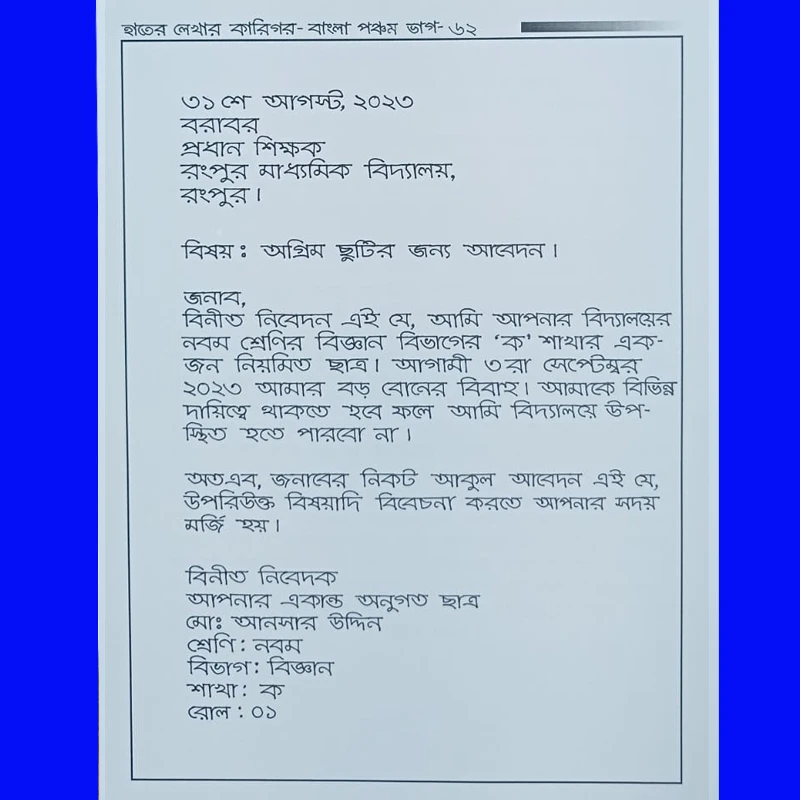 হাতের লেখার কারিগর- বাংলা পঞ্চম ভাগ- ৬২
৩১ শে আগস্ট, ২০২৩
বরাবর
প্রধান শিক্ষক
রংপুর মাধ্যমিক বিদ্যালয়,
রংপুর।
বিষয়ঃ অগ্রিম ছুটির জন্য আবেদন।
জনাব,
বিনীত নিবেদন এই যে, আমি আপনার বিদ্যালয়ের
নবম শ্রেণির বিজ্ঞান বিভাগের ‘ক’ শাখার এক-
জন নিয়মিত ছাত্র। আগামী ৩রা সেপ্টেম্বর
২০২৩ আমার বড় বোনের বিবাহ। আমাকে বিভিন্ন
দায়িত্বে থাকতে হবে ফলে আমি বিদ্যালয়ে উপ-
স্থিত হতে পারবো না।
অতএব, জনাবের নিকট আকুল আবেদন এই যে,
উপরিউক্ত বিষয়াদি বিবেচনা করতে আপনার সদয়
মর্জি হয়।
বিনীত নিবেদক
আপনার একান্ত অনুগত ছাত্র
মোঃ আনসার উদ্দিন
শ্রেণি : নবম
বিভাগ : বিজ্ঞান
শাখা : ক
রোল : ০১